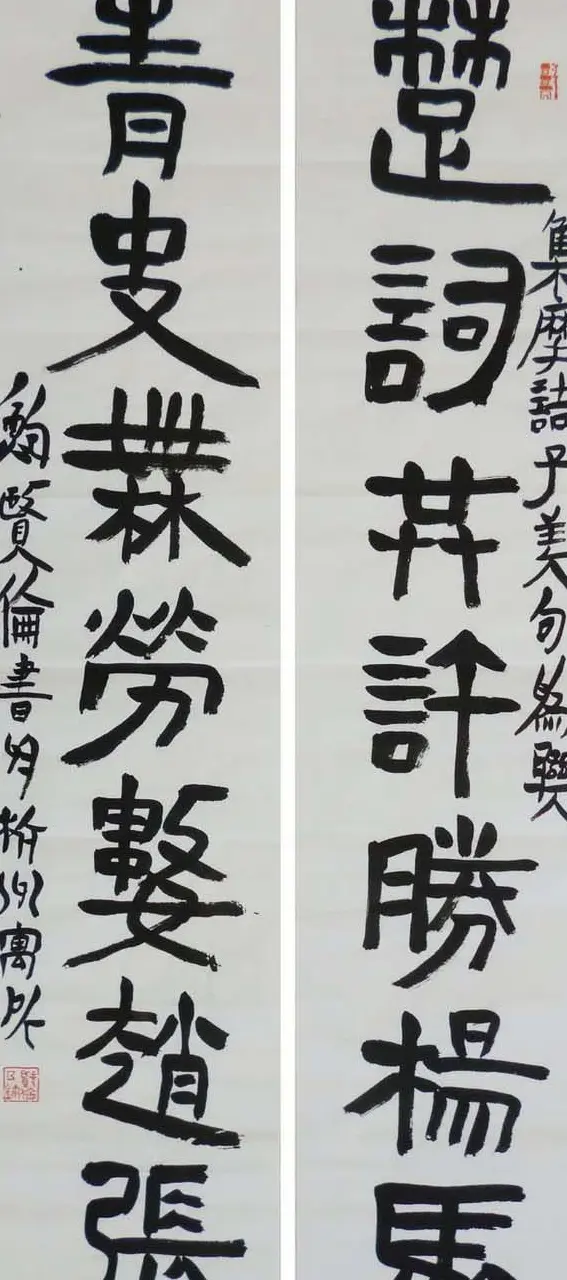 集摩詰子美句爲聯
楚詞共許勝楊馬
青史無勞數趙張
鮑賢倫書於杭州寓所